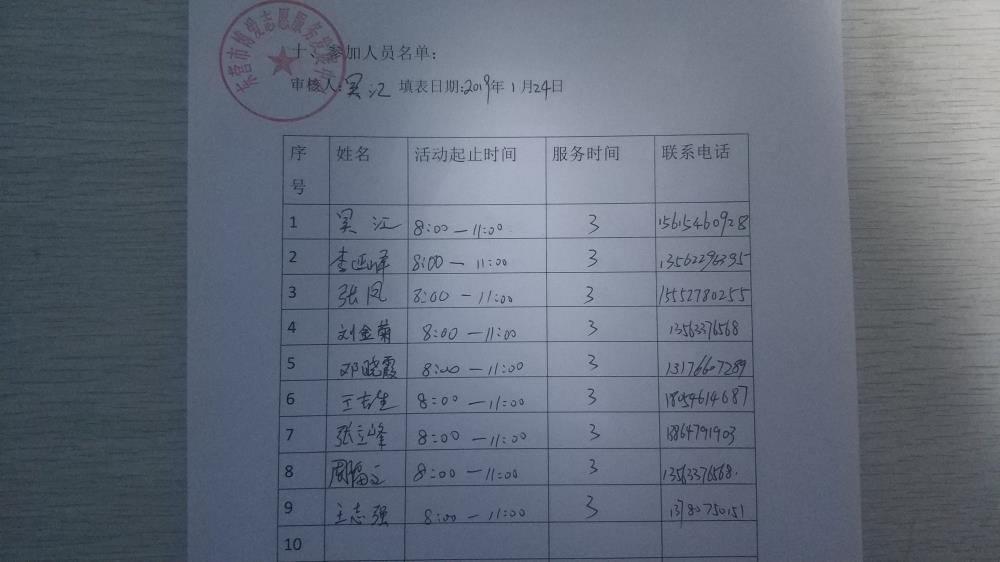 东营市博爱志愿服务发展中心
十、参加人员名单：
审核人：吴江 填表日期：2019年1月24日
序号 姓名 活动起止时间 服务时间 联系电话
1 吴江 8:00—11:00 3 15615460928
2 李亚峰 8:00—11:00 3 13562296395
3 张凤 8:00—11:00 3 15552780255
4 刘金菊 8:00—11:00 3 13563376568
5 邓晓霞 8:00—11:00 3 13176607289
6 王吉生 8:00—11:00 3 18054614687
7 张立峰 8:00—11:00 3 13864791903
8 8:00—11:00 3 13563376568.
9 王志强 8:00—11:00 3 13780750151
10